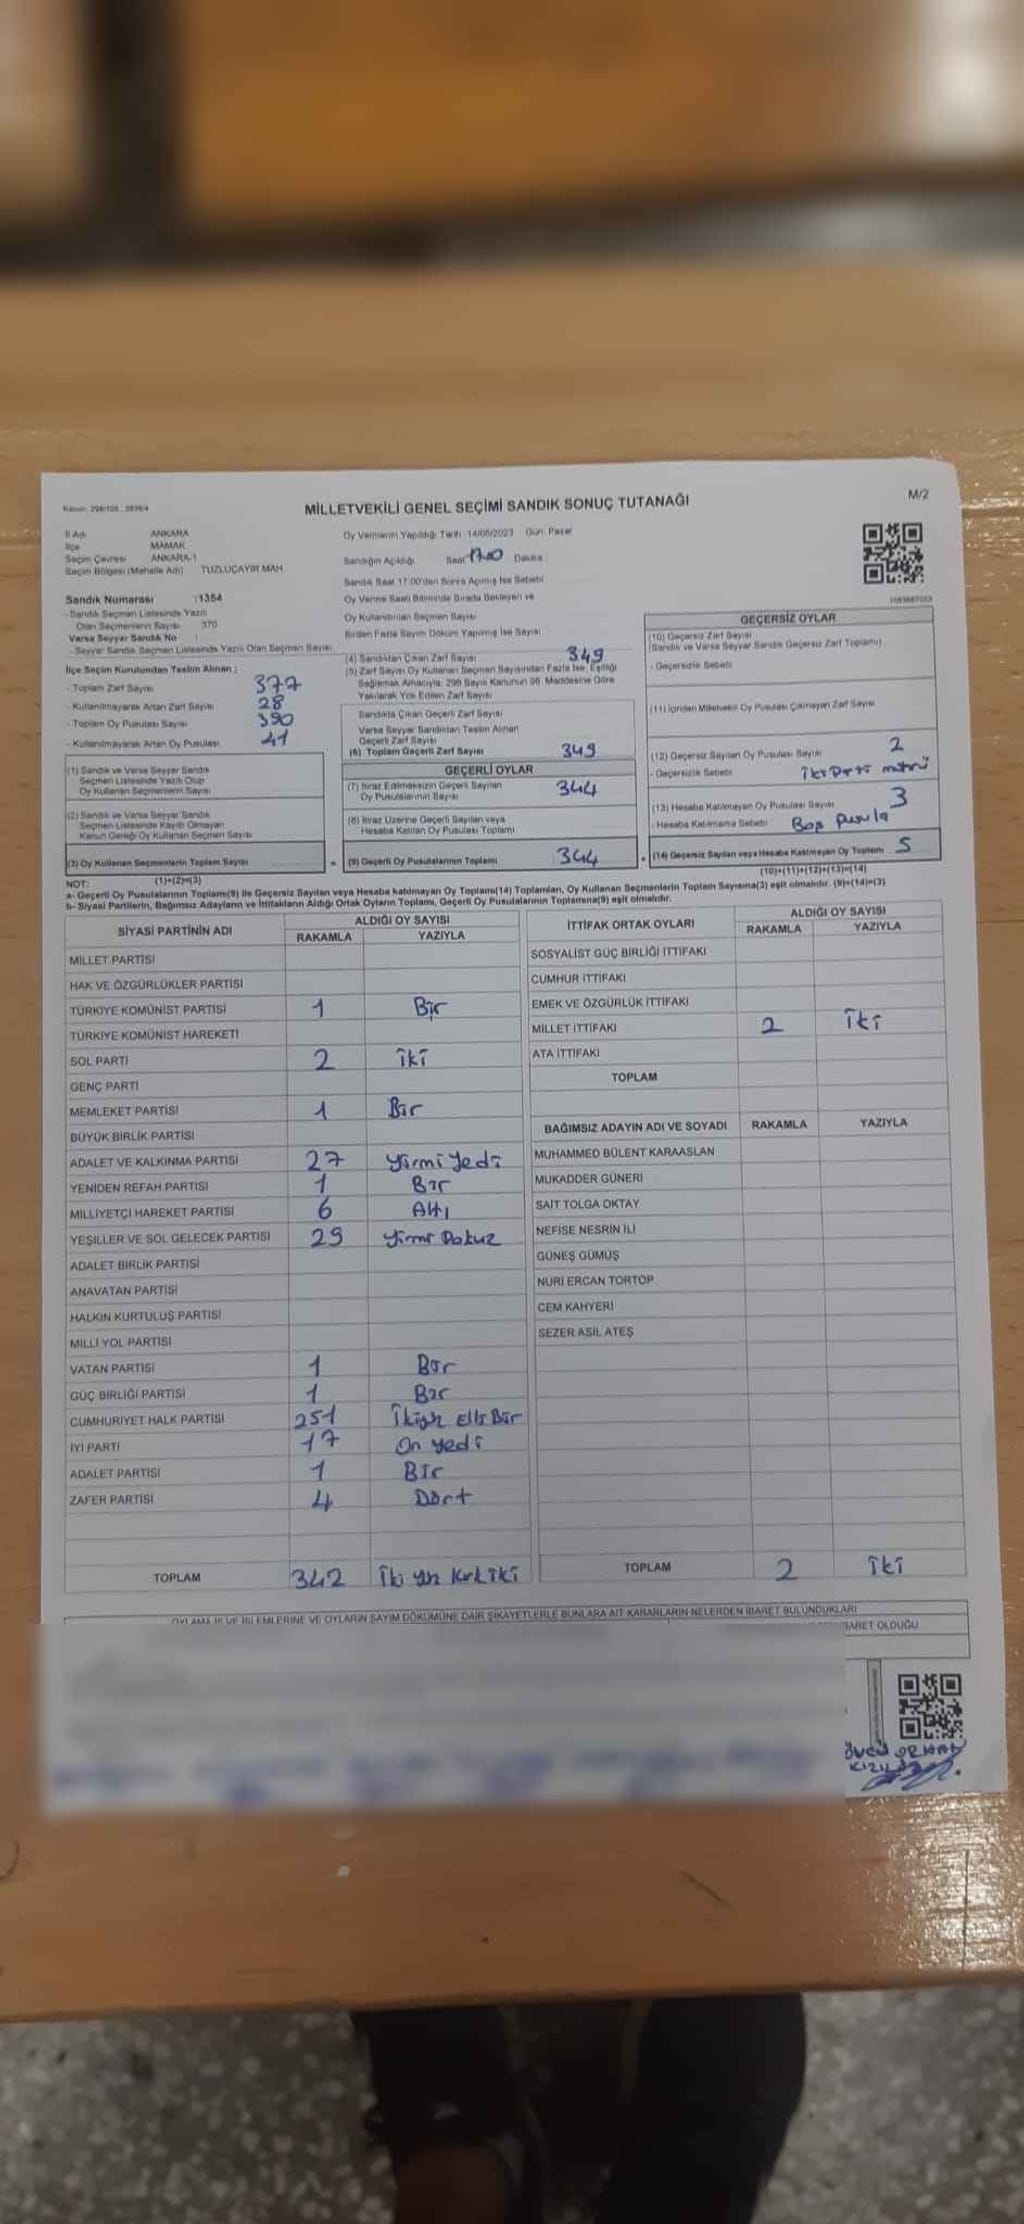 Kanun: 298/105 , 2839/4
MİLLETVEKİLİ GENEL SEÇİMİ SANDIK SONUÇ TUTANAĞI
M/2
İl Adı ANKARA
İlçe MAMAK
Seçim Çevresi ANKARA-1
Seçim Bölgesi (Mahalle Adı) TUZLUÇAYIR MAH.
Sandık Numarası :1354
- Sandık Seçmen Listesinde Yazılı
Olan Seçmenlerin Sayısı 370
Varsa Seyyar Sandık No :
- Seyyar Sandık Seçmen Listesinde Yazılı Olan Seçmen Sayısı
İlçe Seçim Kurulundan Teslim Alınan :
- Toplam Zarf Sayısı 377
- Kullanılmayarak Artan Zarf Sayısı 28
- Toplam Oy Pusulası Sayısı 390
- Kullanılmayarak Artan Oy Pusulası 41
(1) Sandık ve Varsa Seyyar Sandık
Seçmen Listesinde Yazılı Olup
Oy Kullanan Seçmenlerin Sayısı
(2) Sandık ve Varsa Seyyar Sandık
Seçmen Listesinde Kayıtlı Olmayan
Kanun Gereği Oy Kullanan Seçmen Sayısı
(3) Oy Kullanan Seçmenlerin Toplam Sayısı
(1)+(2)=(3)
Oy Vermenin Yapıldığı Tarih :14/05/2023 Gün: Pazar
Sandığın Açıldığı Saat 17.00 Dakika
Sandık Saat 17:00'den Sonra Açılmış İse Sebebi
Oy Verme Saati Bitiminde Sırada Bekleyen ve
Oy Kullandırılan Seçmen Sayısı
Birden Fazla Sayım Döküm Yapılmış İse Sayısı
(4) Sandıktan Çıkan Zarf Sayısı 349
(5) Zarf Sayısı Oy Kullanan Seçmen Sayısından Fazla İse, Eşitliği
Sağlamak Amacıyla, 298 Sayılı Kanunun 98. Maddesine Göre
Yakılarak Yok Edilen Zarf Sayısı
Sandıkta Çıkan Geçerli Zarf Sayısı
Varsa Seyyar Sandıktan Teslim Alınan
Geçerli Zarf Sayısı
(6) Toplam Geçerli Zarf Sayısı 349
GEÇERLİ OYLAR
(7) İtiraz Edilmeksizin Geçerli Sayılan
Oy Pusulalarının Sayısı 344
(8) İtiraz Üzerine Geçerli Sayılan veya
Hesaba Katılan Oy Pusulası Toplamı
= (9) Geçerli Oy Pusulalarının Toplamı 344 +
GEÇERSİZ OYLAR
(10) Geçersiz Zarf Sayısı
(Sandık ve Varsa Seyyar Sandık Geçersiz Zarf Toplamı)
- Geçersizlik Sebebi
(11) İçinden Milletvekili Oy Pusulası Çıkmayan Zarf Sayısı
(12) Geçersiz Sayılan Oy Pusulası Sayısı 2
- Geçersizlik Sebebi İki Parti mührü
(13) Hesaba Katılmayan Oy Pusulası Sayısı 3
- Hesaba Katılmama Sebebi Boş Pusula
(14) Geçersiz Sayılan veya Hesaba Katılmayan Oy Toplamı 5
(10)+(11)+(12)+(13)=(14)
NOT:
a- Geçerli Oy Pusulalarının Toplamı(9) ile Geçersiz Sayılan veya Hesaba katılmayan Oy Toplamı(14) Toplamları, Oy Kullanan Seçmenlerin Toplam Sayısına(3) eşit olmalıdır. (9)+(14)=(3)
b- Siyasi Partilerin, Bağımsız Adayların ve İttifakların Aldığı Ortak Oyların Toplamı, Geçerli Oy Pusulalarının Toplamına(9) eşit olmalıdır.
SİYASİ PARTİNİN ADI ALDIĞI OY SAYISI
RAKAMLA YAZIYLA
MİLLET PARTİSİ
HAK VE ÖZGÜRLÜKLER PARTİSİ
TÜRKİYE KOMÜNİST PARTİSİ 1 Bir
TÜRKİYE KOMÜNİST HAREKETİ
SOL PARTİ 2 iki
GENÇ PARTİ
MEMLEKET PARTİSİ 1 Bir
BÜYÜK BİRLİK PARTİSİ
ADALET VE KALKINMA PARTİSİ 27 Yirmi Yedi
YENİDEN REFAH PARTİSİ 1 Bir
MİLLİYETÇİ HAREKET PARTİSİ 6 Altı
YEŞİLLER VE SOL GELECEK PARTİSİ 29 Yirmi Dokuz
ADALET BİRLİK PARTİSİ
ANAVATAN PARTİSİ
HALKIN KURTULUŞ PARTİSİ
MİLLİ YOL PARTİSİ
VATAN PARTİSİ 1 Bir
GÜÇ BİRLİĞİ PARTİSİ 1 Bir
CUMHURİYET HALK PARTİSİ 251 İkiyüz Elli Bir
İYİ PARTİ 17 On yedi
ADALET PARTİSİ 1 Bir
ZAFER PARTİSİ 4 Dört
TOPLAM 342 İki yüz Kırk iki
İTTİFAK ORTAK OYLARI ALDIĞI OY SAYISI
RAKAMLA YAZIYLA
SOSYALİST GÜÇ BİRLİĞİ İTTİFAKI
CUMHUR İTTİFAKI
EMEK VE ÖZGÜRLÜK İTTİFAKI
MİLLET İTTİFAKI 2 iki
ATA İTTİFAKI
TOPLAM
BAĞIMSIZ ADAYIN ADI VE SOYADI RAKAMLA YAZIYLA
MUHAMMED BÜLENT KARAASLAN
MUKADDER GÜNERİ
SAİT TOLGA OKTAY
NEFİSE NESRİN İLİ
GÜNEŞ GÜMÜŞ
NURİ ERCAN TORTOP
CEM KAHYERİ
SEZER ASIL ATEŞ
TOPLAM 2 iki
OYLAMA İŞ VE İŞLEMLERİNE VE OYLARIN SAYIM DÖKÜMÜNE DAİR ŞİKAYETLERLE BUNLARA AİT KARARLARIN NELERDEN İBARET BULUNDUKLARI
İBARET OLDUĞU